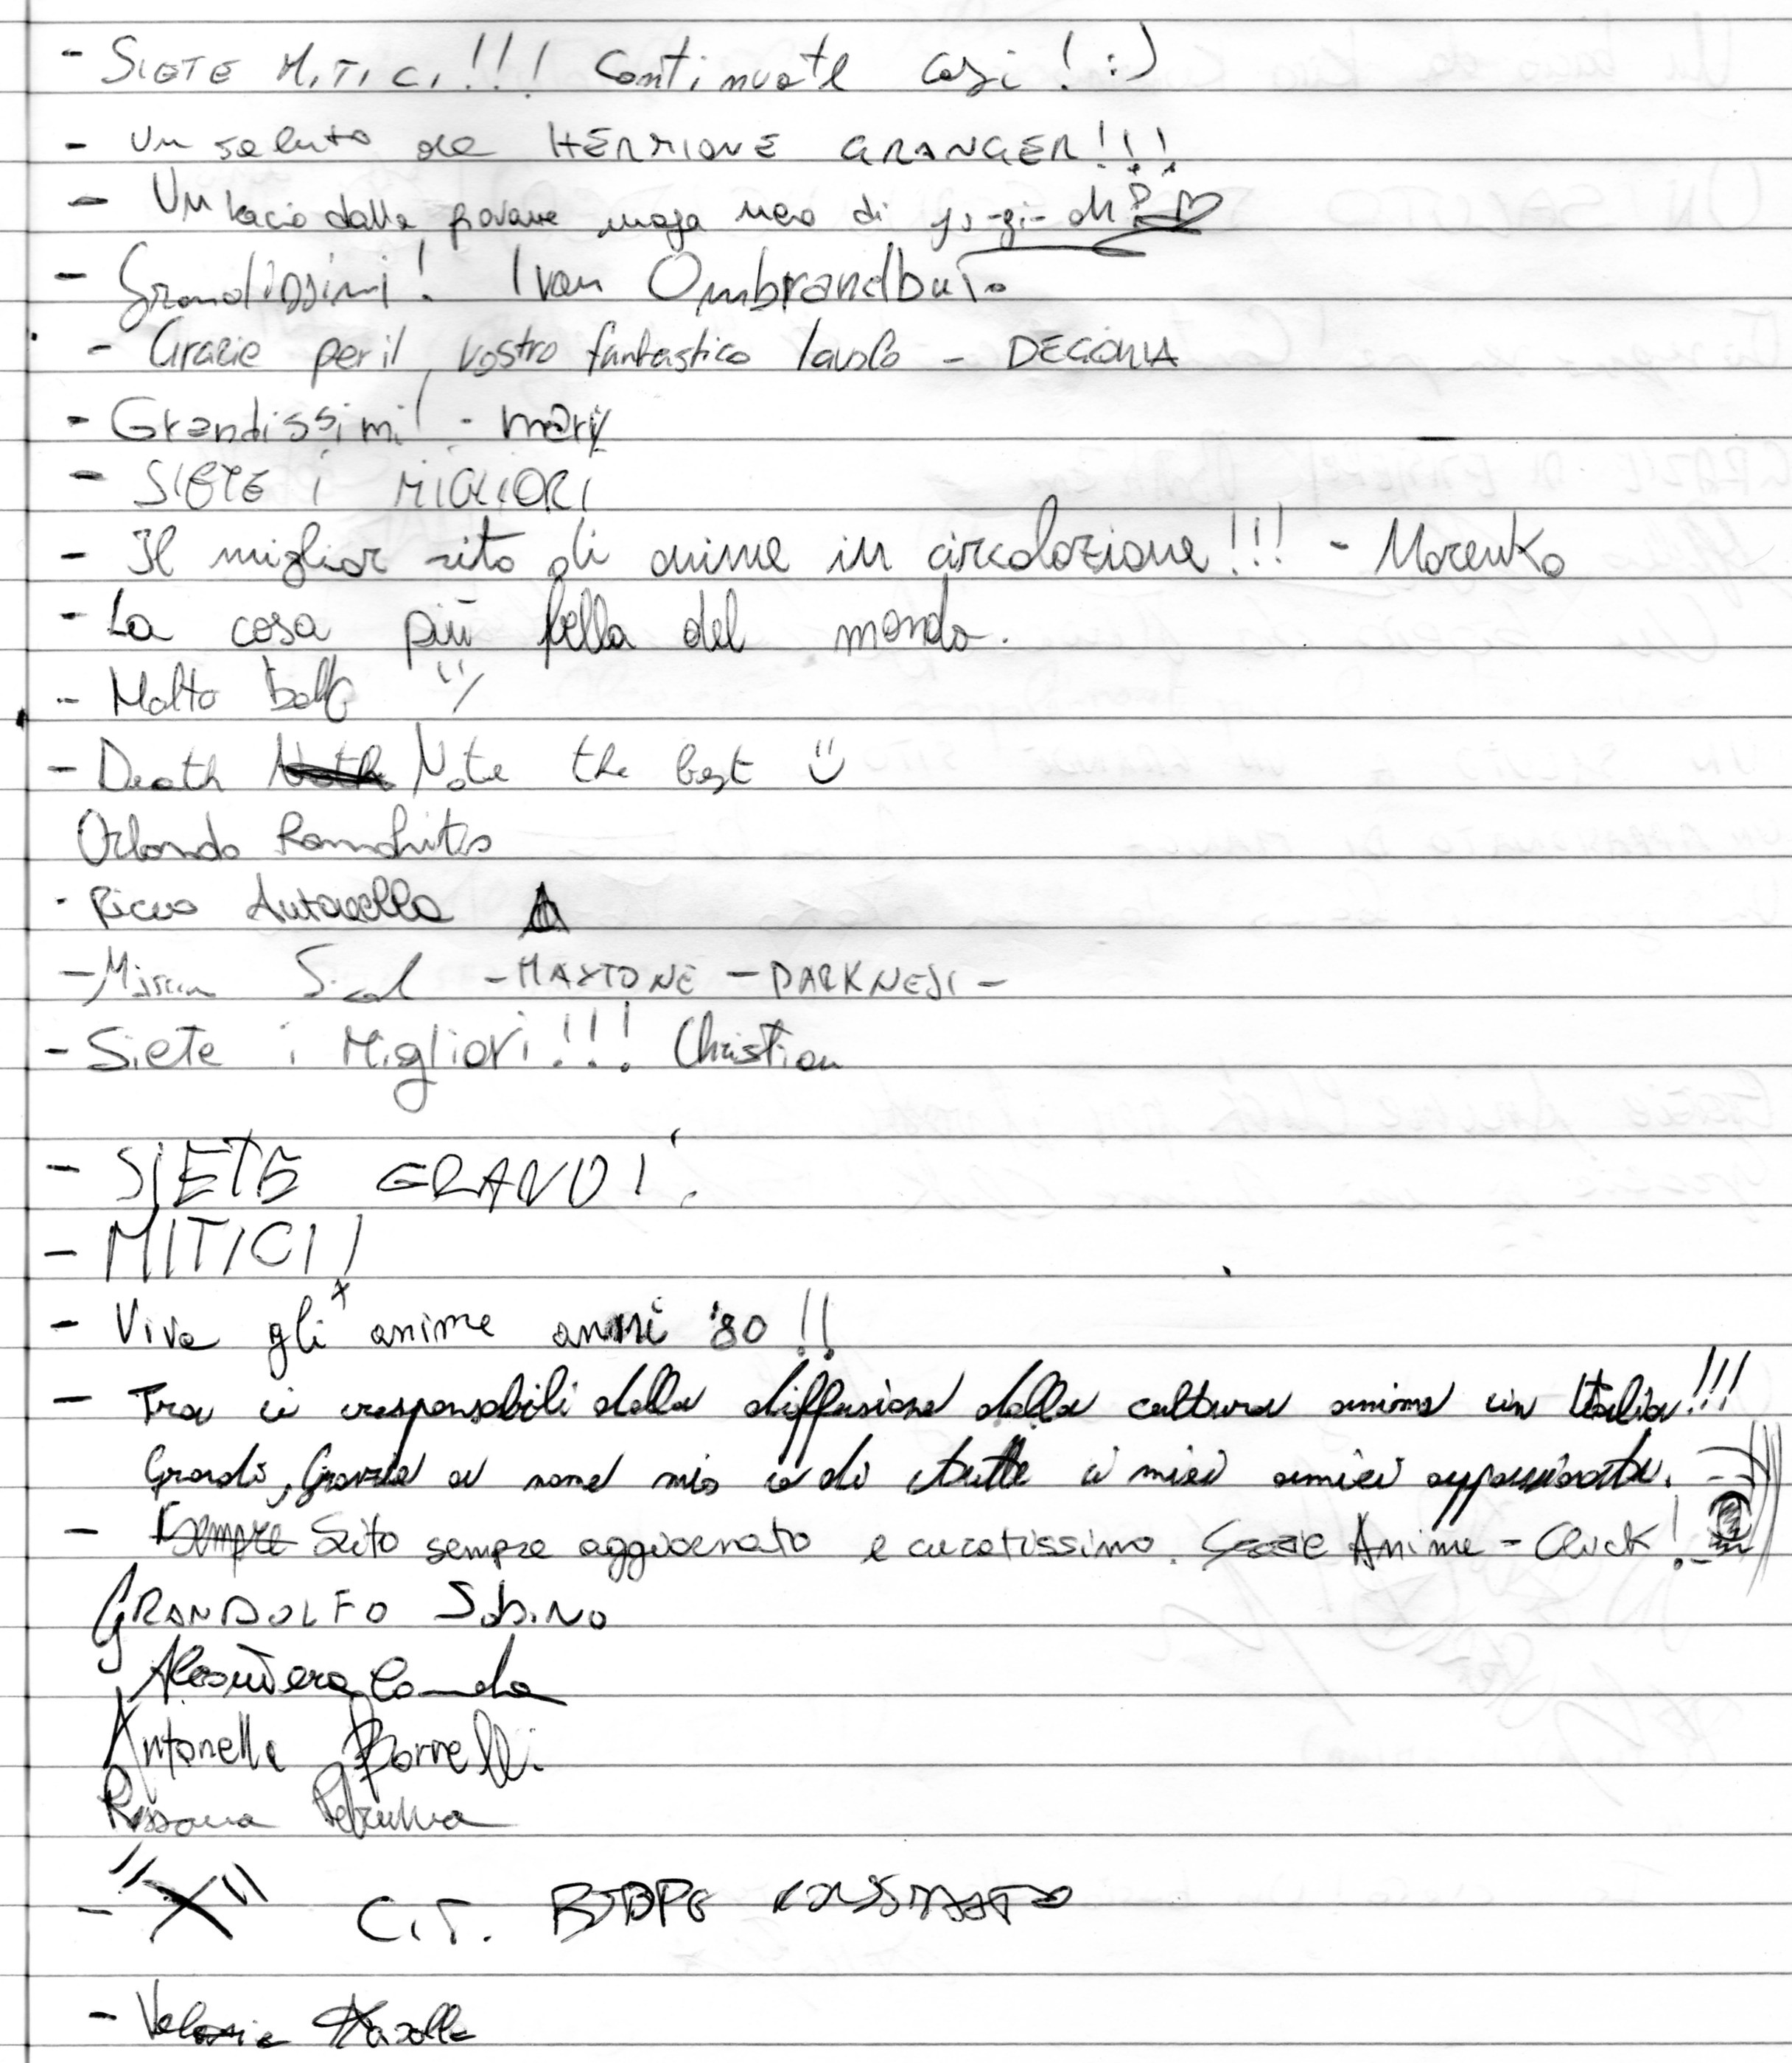 - SIETE MITICI!!! Continuate così! :)
- Un saluto da HERMIONE GRANGER!!!
- Un bacio dalla giovane maga nera di yu-gi-oh
- Grandissimi! Ivan Ombrandbuio
- Grazie per il vostro fantastico lavoro -
- Grandissimi! - mary
- SIETE i MIGLIORI
- Il miglior sito di anime in circolazione!!! - Morenko
- La cosa più bella del mondo.
- Molto bello
- Death Note the best
Orlando
- Antonella
- - MAXTONE - DARKNESS -
- Siete i Migliori!!! Christian
- SIETE GRANDI!
- MITICI!
- Viva gli anime anni '80!!
- Tra i responsabili della diffusione della cultura anime in Italia!!!
Grandi, Grazie a nome mio e di tutti i miei amici appassionati.
- Sempre Sito sempre aggiornato e curatissimo. Grazie Anime-Click!
GRANDOLFO SABINO
Antonella Bornelli
Rossana
- "X" CIT.
- Valeria